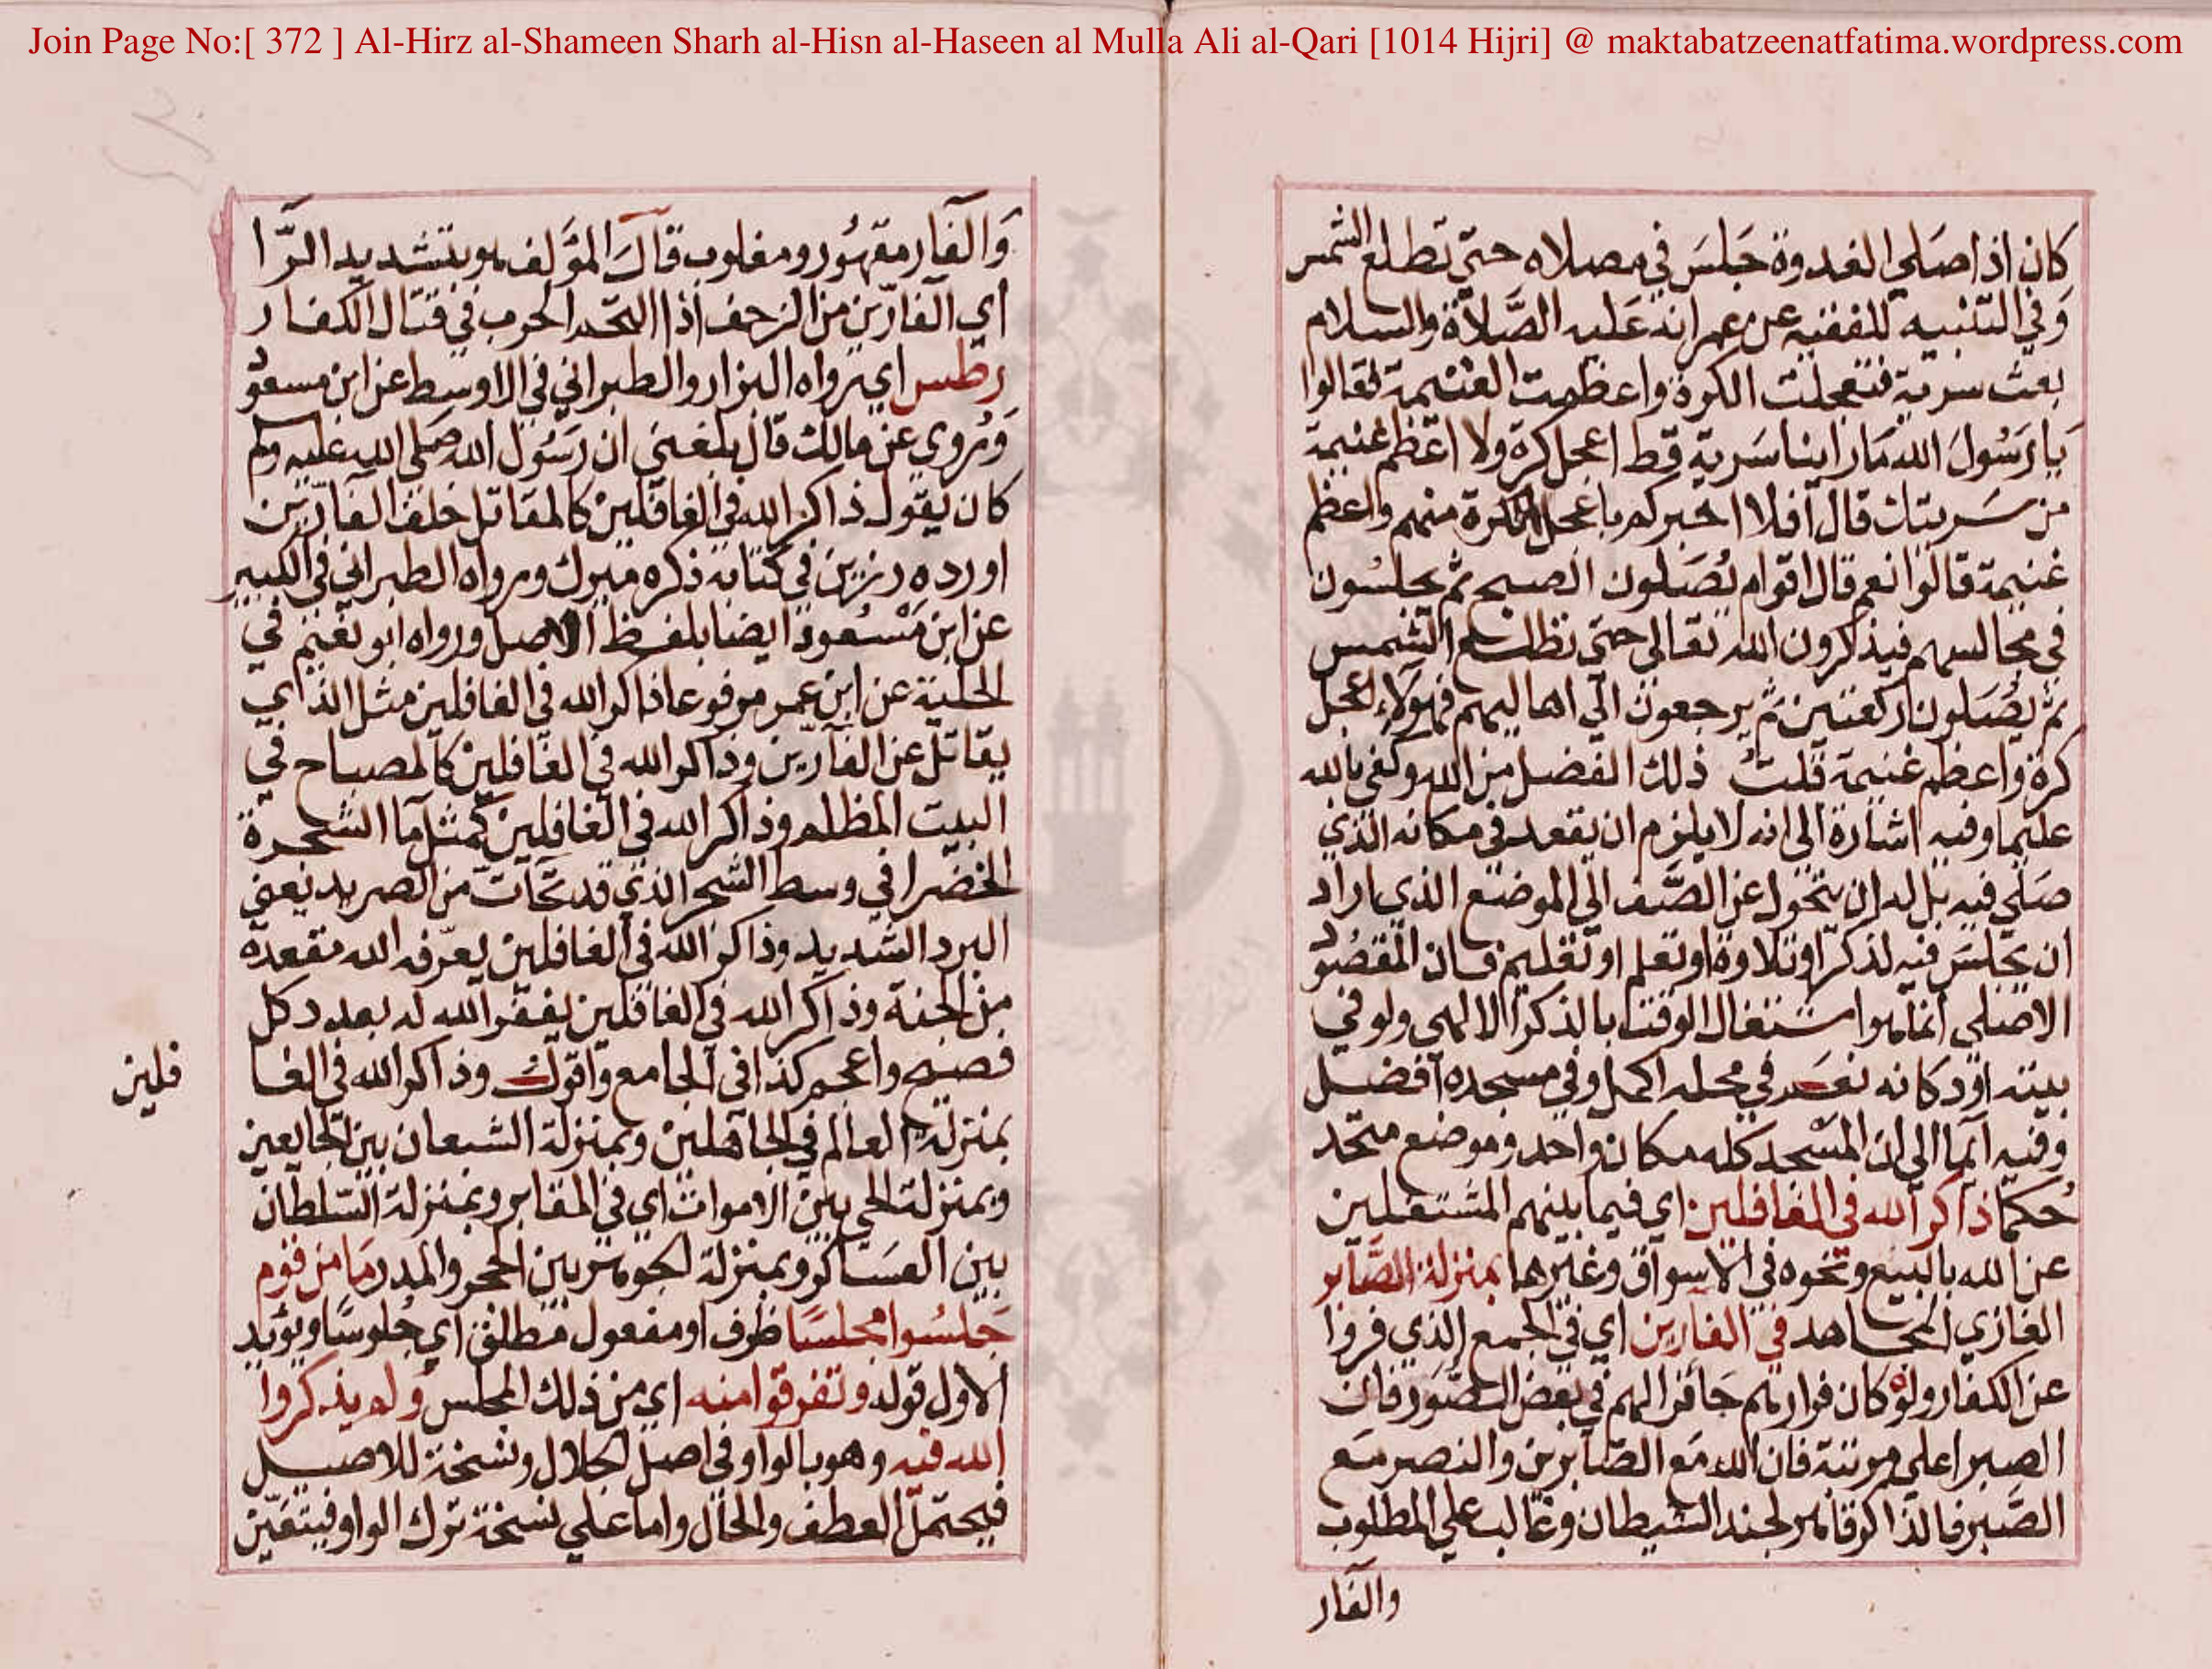 Join Page No:[ 372 ] Al-Hirz al-Shameen Sharh al-Hisn al-Haseen al Mulla Ali al-Qari [1014 Hijri] @ maktabatzeenatfatima.wordpress.com
كان اذا صلي الغدوة جَلسَ في مصلاه حتي تطلع الشمس
وَفي التنبيه للفقيه عن عمر انه عَليه الصَّلاة والسلام
بعث سرية فتعجلت الكرة واعظمت الغنيمة فقالوا
يَا رَسُولَ الله مَا راينا سَرية قط اعجل كرة ولا اعظم غنيمة
من سَريتك قال افلا اخبركم باعجل الكرة منهم واعظم
غنيمة قالوا نعم قال اقوام يُصَلون الصبح ثم يجلسُون
في مجالسهم فيذكرون الله تعالى حتي تطلع الشمس
ثم يُصَلون ركعتين ثم يرجعون الي اهاليهم فهؤلاء اعجل
كرة واعظم غنيمة قلتُ ذلك الفضل من الله وكفي بالله
عليما وفيه اشارة الى انه لا يلزم ان يقعد في مكانه الذي
صَلي فيه بل له ان يتحول عن الصَّف الي الموضع الذي اراد
ان يجلسَ فيه لذكر او تلاوة او تعلم او تعليم فان المقصُود
الاصلي انما هو اشتغال الوقت بالذكر الالهي ولو في
بيته او دكانه نعَم في محله اكمل وفي مسجده افضل
وفيه ايما الي ان المسْجد كله مكان واحد وموضع متحد
حُكما ذاكر الله في الغافلين اي فيما بينهم المشتغلين
عن الله بالبيع ونحوه في الاسواق وغيرها بمنزلة الصَّابر
الغازي المجاهد في الفارين اي في الجمع الذي فروا
عن الكفار ولو كان فرارهم جَائزا لهم في بعض الصُّوَر فان
الصبر اعلي مرتبة فان الله مَع الصَّابرين والنصر مَع
الصَّبر فالذاكر قاهر لجند الشيطان وغالب علي المطلوب
والفار
وَالفار مقهُور ومغلوب قالَ المؤلف هو بتشديد الرَّا
اي الفارّين من الزحف اذا التحم الحرب في قتال الكفار
رطس اي رواه البزار والطبراني في الاوسط عن ابن مسعود
وَرُوي عن مالك قال بلغني ان رَسُول الله صَلي الله عليه وسلم
كان يقول ذاكر الله في الغافلين كالمقاتل خلف الفارّين
اورده رزين في كتابه ذكره ميرك ورواه الطبراني في الكبير
عن ابن مَسْعُود ايضا بلفظ الاصل ورواه ابو نعيم في
الحلية عن ابن عمر مرفوعا ذاكر الله في الغافلين مثل الذي
يقاتل عن الفارّين وذاكر الله في الغافلين كالمصباح في
البيت المظلم وذاكر الله في الغافلين كمثل ما الشجرة
الخضرا في وسط الشجر الذي قد تحات من الصريد يَعني
البرد الشديد وذاكر الله في الغافلين يعرّفه الله مقعده
من الجنة وذاكر الله في الغافلين يغفر الله له بعدد كل
فصيح واعجم كذا في الجامع واقول وذاكر الله في الغا
فلين
بمنزلة العالم في الجاهلين وبمنزلة الشبعان بين الجايعين
وبمنزلة الحي بين الاموات اي في المقابر وبمنزلة السّلطان
بين العسَاكر وبمنزلة الجوهر بين الحجر والمدر مَا من قوم
جَلسُوا مجلسًا ظرف او مفعول مطلق اي جُلوسًا ويؤيد
الاول قوله وتفرقوا منه اي من ذلك المجلس وَلم يذكروا
الله فيه وهو بالواو في اصل الجلال ونسخة للاصيل
فيحتمل العطف والحال واما علي نسخة ترك الواو فيتعَيّن